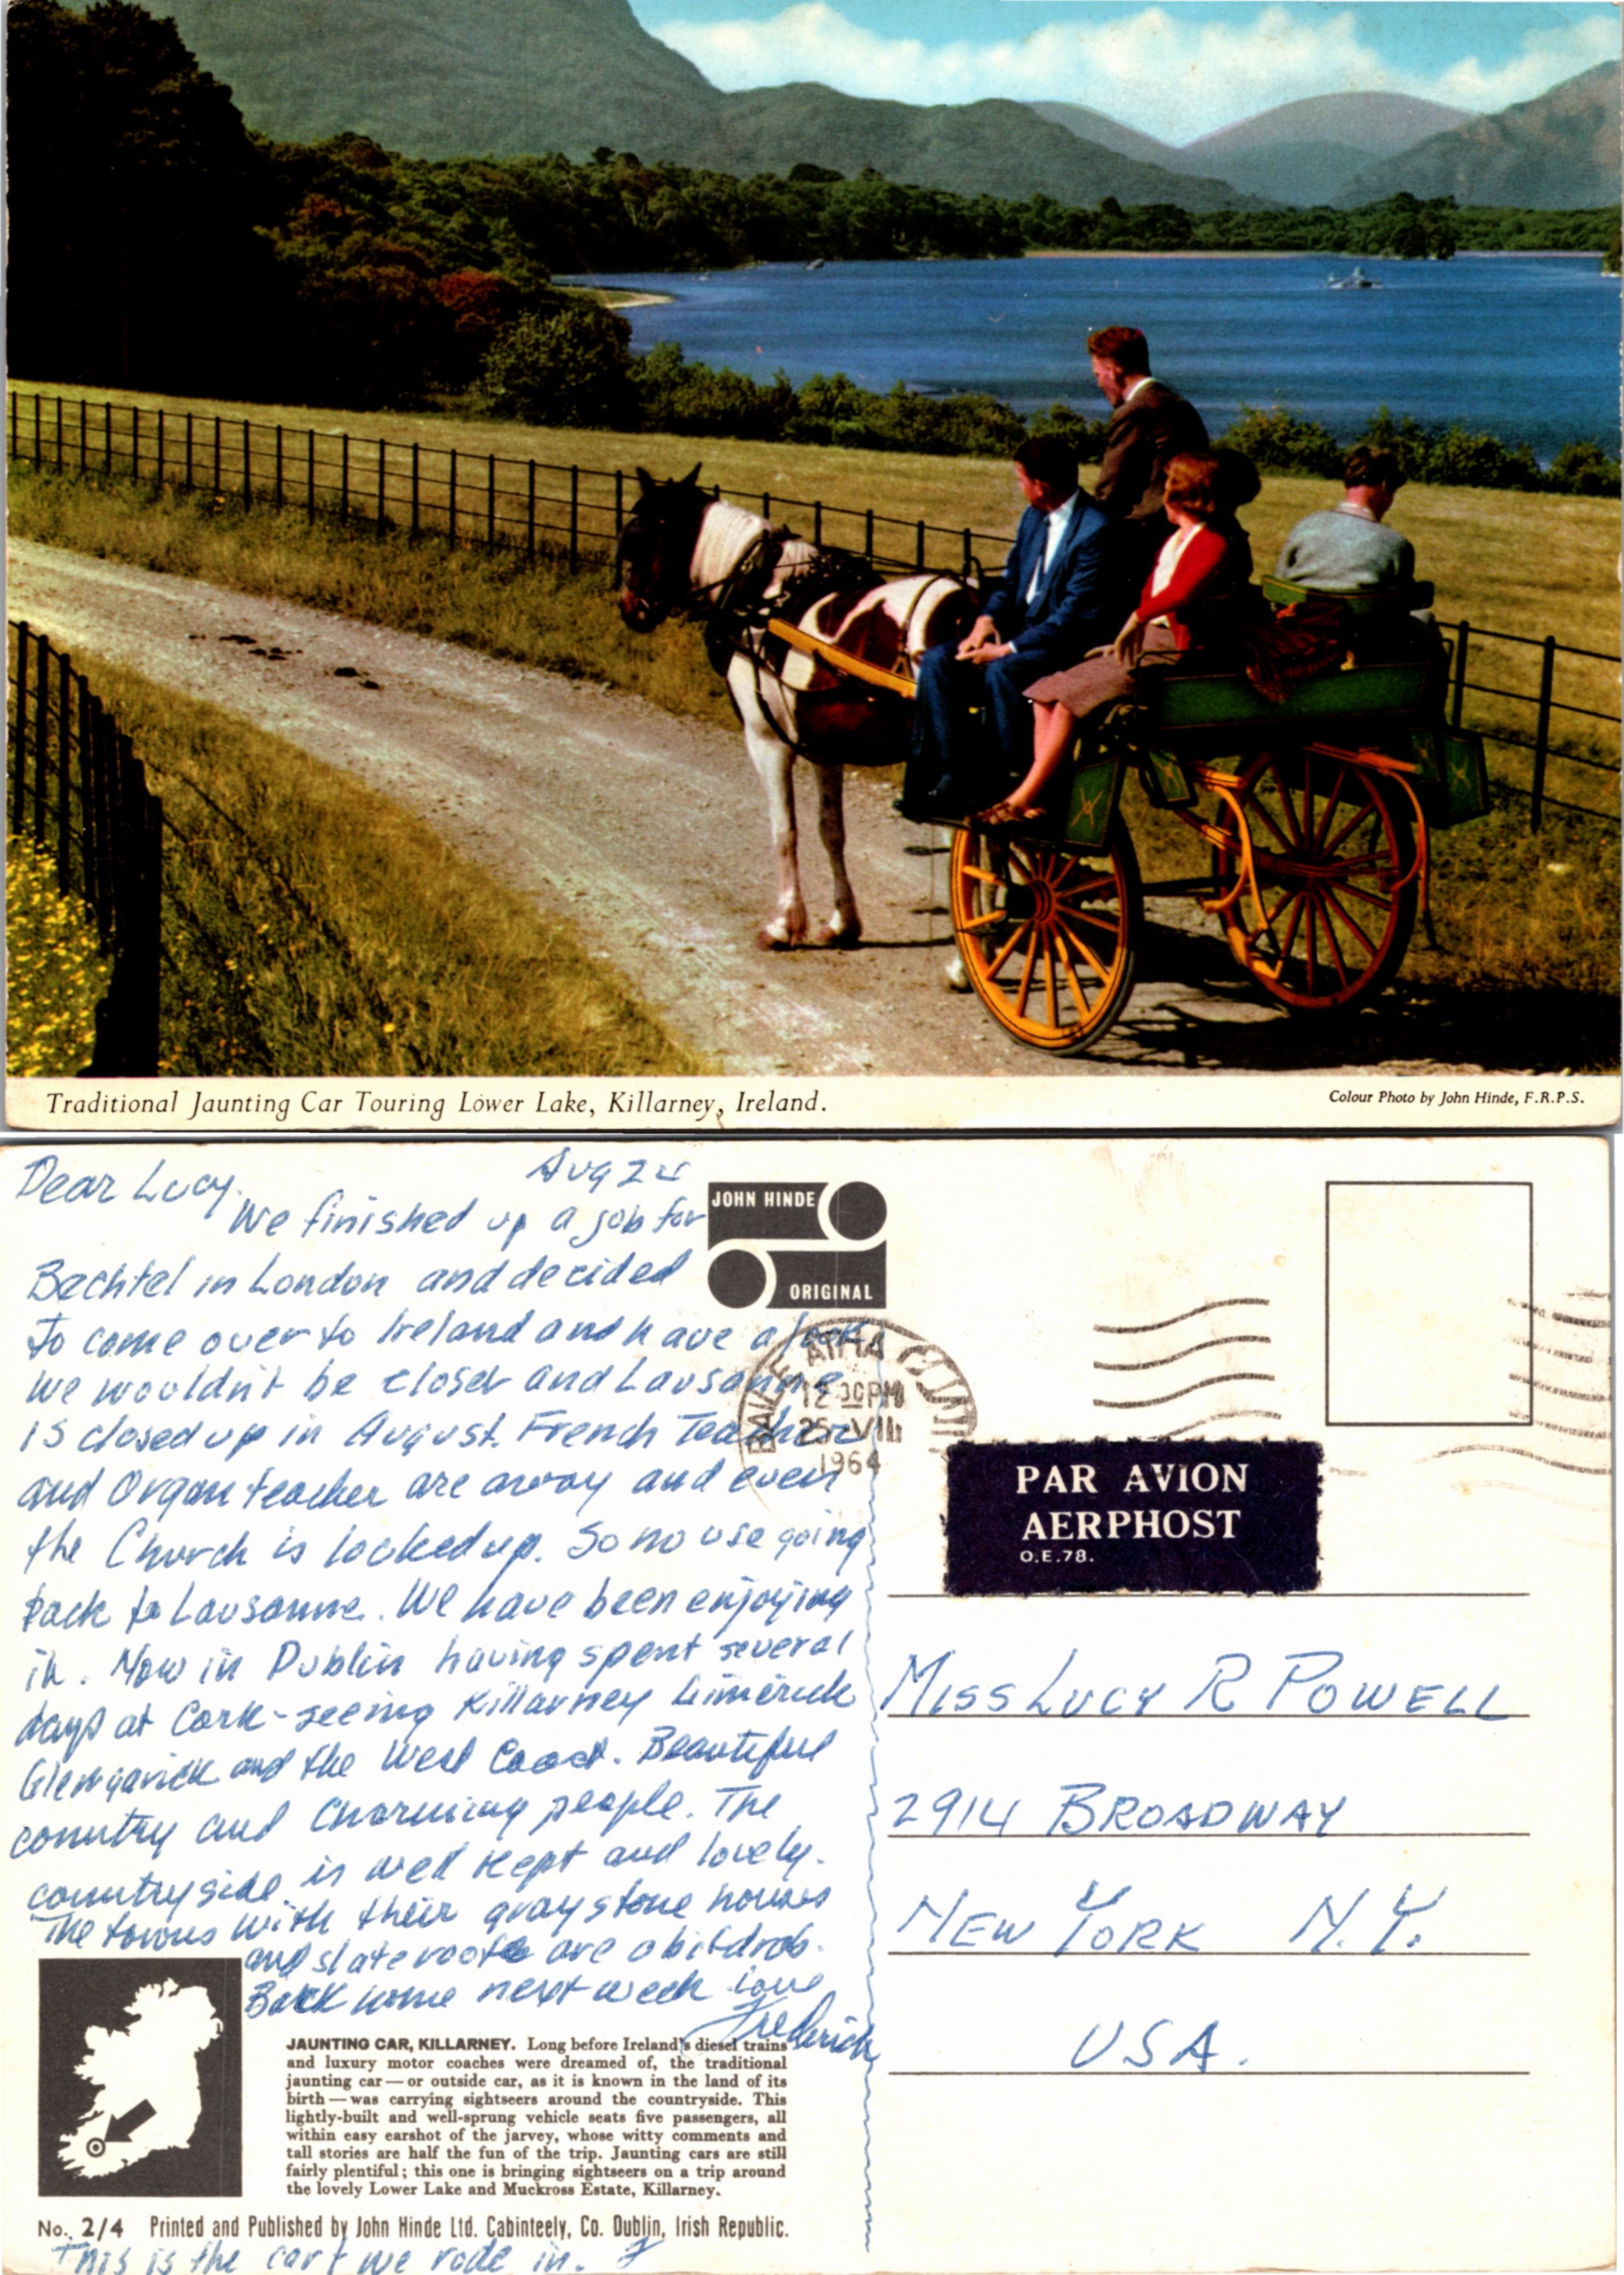 Traditional Jaunting Car Touring Lower Lake, Killarney, Ireland.
Colour Photo by John Hinde, F.R.P.S.
Aug 24
Dear Lucy.
We finished up a job for
Bechtel in London and decided
to come over to Ireland and have a look
We wouldn't be closer and Lausanne
is closed up in August. French Teacher
and Organ teacher are away and even
the Church is locked up. So no use going
back to Lausanne. We have been enjoying
it. Now in Dublin having spent several
days at Cork - seeing Killarney Limerick
Glengarick and the West Coast. Beautiful
country and Charming people. The
countryside is well kept and lovely.
The towns with their gray stone houses
and slate roofs are a bit drab.
Back home next week love
Frederick
JOHN HINDE
ORIGINAL
BAILE ÁTHA
12 30PM
25 VIII
1964
PAR AVION
AERPHOST
O.E.78.
MISS LUCY R POWELL
2914 BROADWAY
NEW YORK N.Y.
USA.
JAUNTING CAR, KILLARNEY. Long before Ireland's diesel trains
and luxury motor coaches were dreamed of, the traditional
jaunting car — or outside car, as it is known in the land of its
birth — was carrying sightseers around the countryside. This
lightly-built and well-sprung vehicle seats five passengers, all
within easy earshot of the jarvey, whose witty comments and
tall stories are half the fun of the trip. Jaunting cars are still
fairly plentiful; this one is bringing sightseers on a trip around
the lovely Lower Lake and Muckross Estate, Killarney.
No. 2/4 Printed and Published by John Hinde Ltd. Cabinteely, Co. Dublin, Irish Republic.
This is the cart we rode in. F